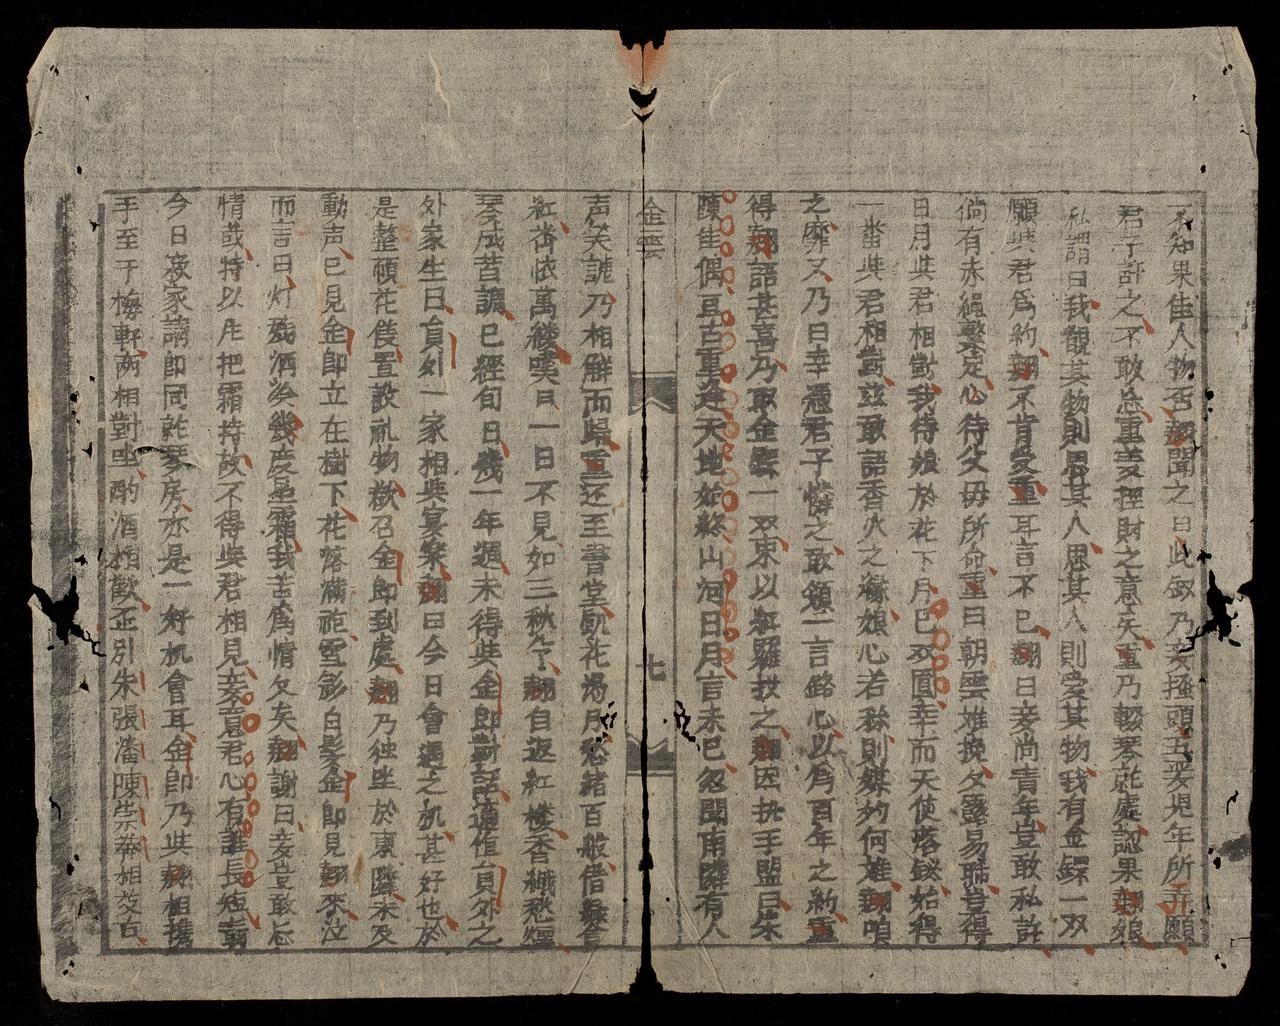 不知果佳人物否翹聞之曰此釵乃妾搔頭五妾児年所弄願
君子許之不敢忘重義輕財之意矣重乃輟琴就處認果翹娘
私謂曰我觀其物則思其人思其人則愛其物我有金鐲一双
願與君爲約翹不肯受重耳言不已翹曰妾尚青年豈敢私許
倘有赤繩繫足心待父毋所命重曰朝雲难挽夕露易晞豈得
日月與君相對我待娘於花下月已双圓幸而天使落釵始得
一番與君相對玆敢語香火之緣娘心若称則媒妁何难翹咱
之靡又乃曰幸憑君子憐之敢領一言銘心以爲百年之約重
得翹語甚喜乃取金鐲一双束以紅羅投之翹因执手盟曰朱
陳佳偶亘古重逢天地始終山河日月言未已忽聞南隣有人
金雲
七
声笑謔乃相觧而歸重还至書堂凱花濁月愁緒百般借錄會
紅箋怅萬縷嘆曰一日不見如三秋兮翹自返紅楼香纖愁煙
琴成苦譜已經旬日幾一年週未得與金郎對話適值員外之
外家生日員外一家相與宴樂翹曰今日會遇之机甚好也於
是整頓花僟置設礼物欲召金郎到處翹乃独坐於東隣未及
動声已見金郎立在樹下花落满袍雪影白髪金郎見翹來泣
而言曰灯残酒冷幾度星霜我苦爲情久矣翹謝曰妾豈敢忘
情哉特以庄把霜持故不得與君相見妾意君心有誰長短哉
今日寂家請郎同就琴房亦是一好机會耳金郎乃與翹相携
手至于梅軒兩相對坐酌酒相歡並引朱張潘陳崇莾相父百